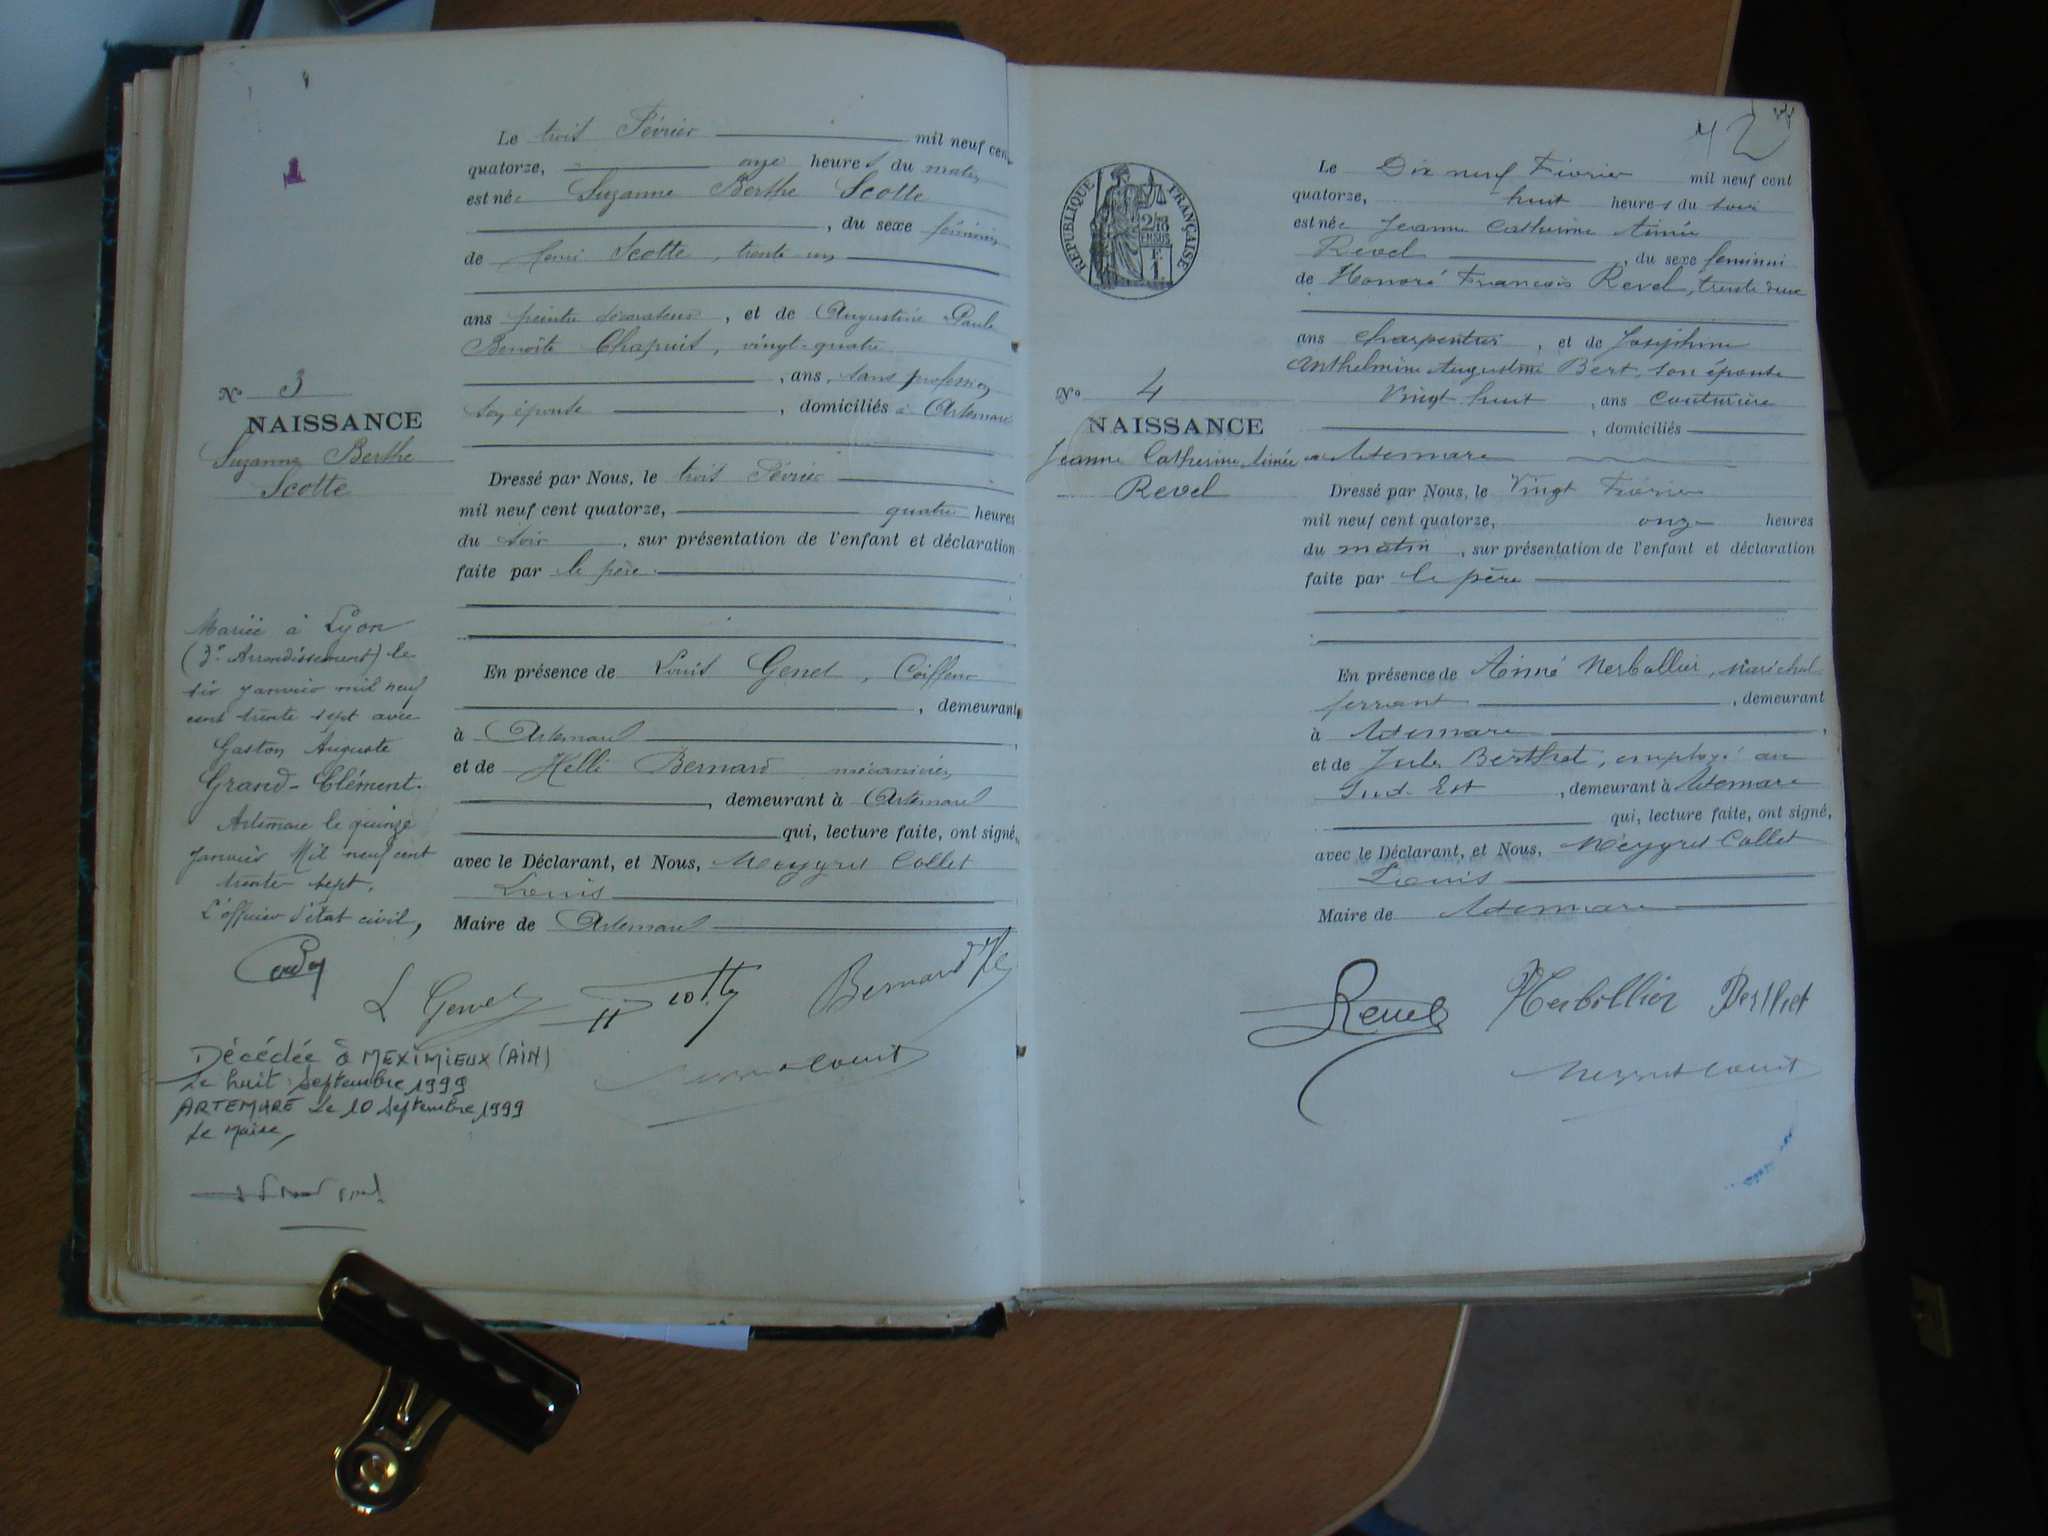 1
Le trois Février mil neuf cent
quatorze, onze heures du matin
est née Suzanne Berthe Scotte
, du sexe féminin
de Henri Scotte, trente un
ans peintre décorateur, et de Augustine Paule
Benoîte Chapuit, vingt-quatre
, ans, sans profession
son épouse, domiciliés à Artemare
N° 3
NAISSANCE
Suzanne Berthe
Scotte
Dressé par Nous, le trois Février
mil neuf cent quatorze, quatre heures
du soir, sur présentation de l'enfant et déclaration
faite par le père
En présence de Louis Genet, Coiffeur
, demeurant
à Artemare
et de Helli Bernard mécanicien
, demeurant à Artemare
qui, lecture faite, ont signé,
avec le Déclarant, et Nous, Meygret Collet
Louis
Maire de Artemare
Mariée à Lyon
(3e Arrondissement) le
six janvier mil neuf
cent trente sept avec
Gaston Auguste
Grand-Clément.
Artemare le quinze
Janvier Mil neuf cent
trente sept.
L'officier d'état civil,
L Genet Scotte Bernard He
Décédée à MEXIMIEUX (AIN)
Le huit Septembre 1999
ARTEMARE Le 10 Septembre 1999
Le Maire,
42
RÉPUBLIQUE FRANÇAISE
2/10 EN SUS
1 F.
Le Dix neuf Février mil neuf cent
quatorze, huit heures du soir
est née Jeanne Catherine Aimée
Revel, du sexe feminin
de Honoré François Revel, trente deux
ans charpentier, et de Joséphine
Anthelmine Augustine Bert, son épouse
Vingt huit, ans couturière
, domiciliés
à Artemare
N° 4
NAISSANCE
Jeanne Catherine Aimée
Revel
Dressé par Nous, le Vingt Février
mil neuf cent quatorze, onze heures
du matin, sur présentation de l'enfant et déclaration
faite par le père
En présence de Aimé Merbollier, Maréchal
ferrant, demeurant
à Artemare
et de Jules Berthet, employé au
Sud-Est, demeurant à Artemare
qui, lecture faite, ont signé,
avec le Déclarant, et Nous, Meygret Collet
Louis
Maire de Artemare
Revel Merbollier Berthet